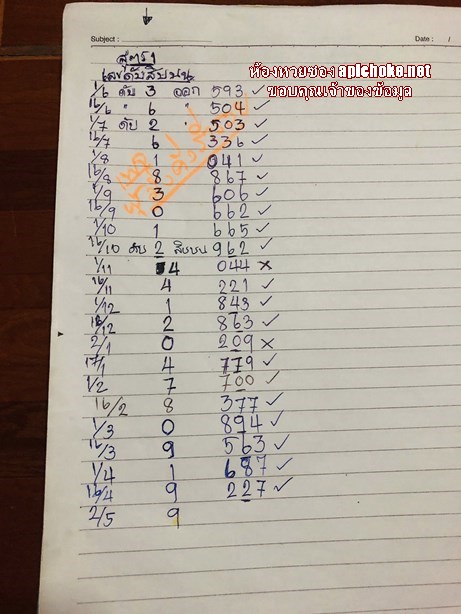 Subject :
Date : /
สูตร 1
เลขดับสิบบน
ห้องหวยซอง apichoke.net
ขอบคุณเจ้าของข้อมูล
1/6 ดับ 3 ออก 593 ✓
16/6 " 6 " 504 ✓
1/7 ดับ 2 " 503 ✓
16/7 6 336 ✓
1/8 1 041 ✓
16/8 8 867 ✓
1/9 3 606 ✓
16/9 0 662 ✓
1/10 1 665 ✓
16/10 ดับ 2 สิบบน 962 ✓
1/11 4 044 ×
16/11 4 221 ✓
1/12 1 843 ✓
16/12 2 863 ✓
2/1 0 209 ×
17/1 4 779 ✓
1/2 7 700 ✓
16/2 8 377 ✓
1/3 0 894 ✓
16/3 9 563 ✓
1/4 1 687 ✓
16/4 9 227 ✓
2/5 9